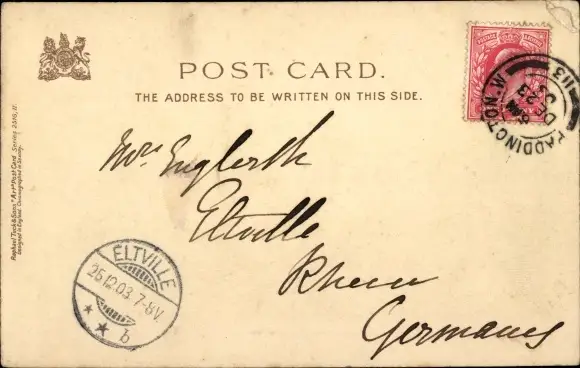 POST CARD.
THE ADDRESS TO BE WRITTEN ON THIS SIDE.
Raphael Tuck & Sons' "Art" Post Card Series
Designed in England
PADDINGTON. W.
DE 23
03
113
Mrs Englerth
Eltville
Rhein
Germany
ELTVILLE
25.12.03. 7-8V.
* * b